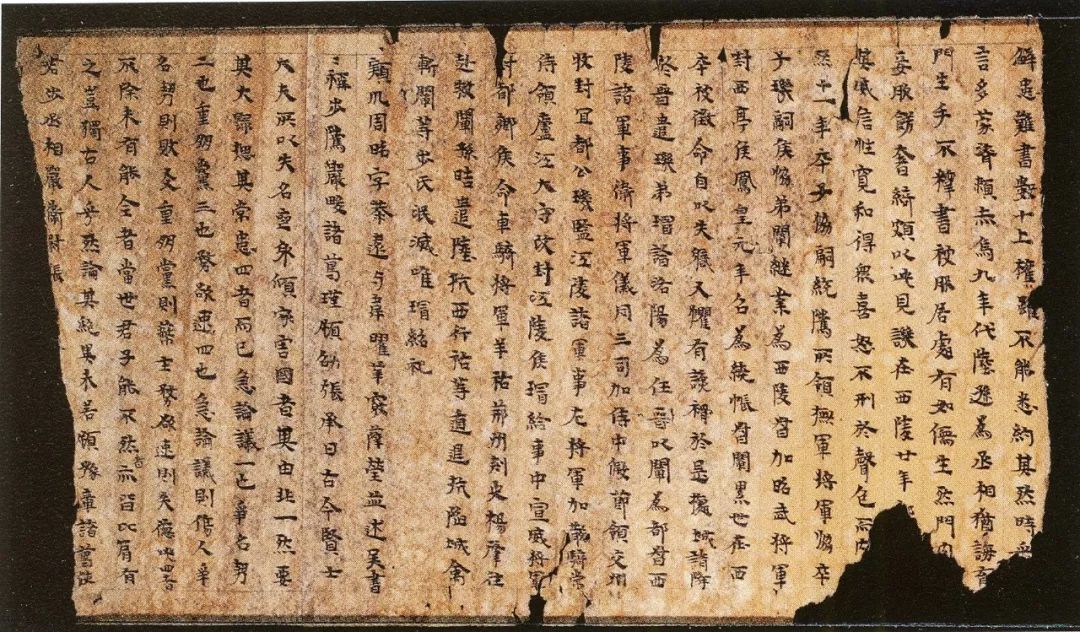 解患難書數十上權雖不能悉納其然時采
言多蒙濟賴赤烏九年代陸遜為丞相猶誨育
門生手不釋書被服居處有如儒生然門內
妾服飾奢綺頗以此見譏在西陵廿年
其威信性寬和得衆喜怒不刑於聲色而內
然十一年卒子協嗣統騭所領撫軍將軍協卒
子璣嗣侯協弟闡繼業為西陵督加昭武將軍
封西亭侯鳳皇元年召為繞帳督闡累世在西
卒被徵命自以失職又懼有讒禍於是據城請降
於晉遣璣弟璿詣洛陽為任晉以闡為都督西
陵諸軍事衛將軍儀同三司加侍中假節領交州
牧封宜都公璣監江陵諸軍事左將軍加散騎常
侍領廬江太守改封江陵侯璿給事中宣威將軍
封都鄉侯命車騎將軍羊祜荊州刺史楊肇往
赴救闡孫晧遣陸抗西行祜等遁退抗陷城禽
斬闡等步氏泯滅唯璿紹祀
潁川周昭字恭遠與韋曜華覈薛瑩並述吳書
稱步騭嚴畯諸葛瑾顧劭張承曰古今賢士
大夫所以失名喪身傾家害國者其由非一然要
其大歸揔其常患四者而已急論議一也爭名勢
二也重朋黨三也務欲速四也急論議則傷人爭
名勢則敗友重朋黨則蔽主務欲速則失德此四者
不除未有能全者當世君子能不然者亦皆比肩有
之豈獨古人乎然論其絕異未若顧豫章諸葛使
君步丞相嚴衛尉張